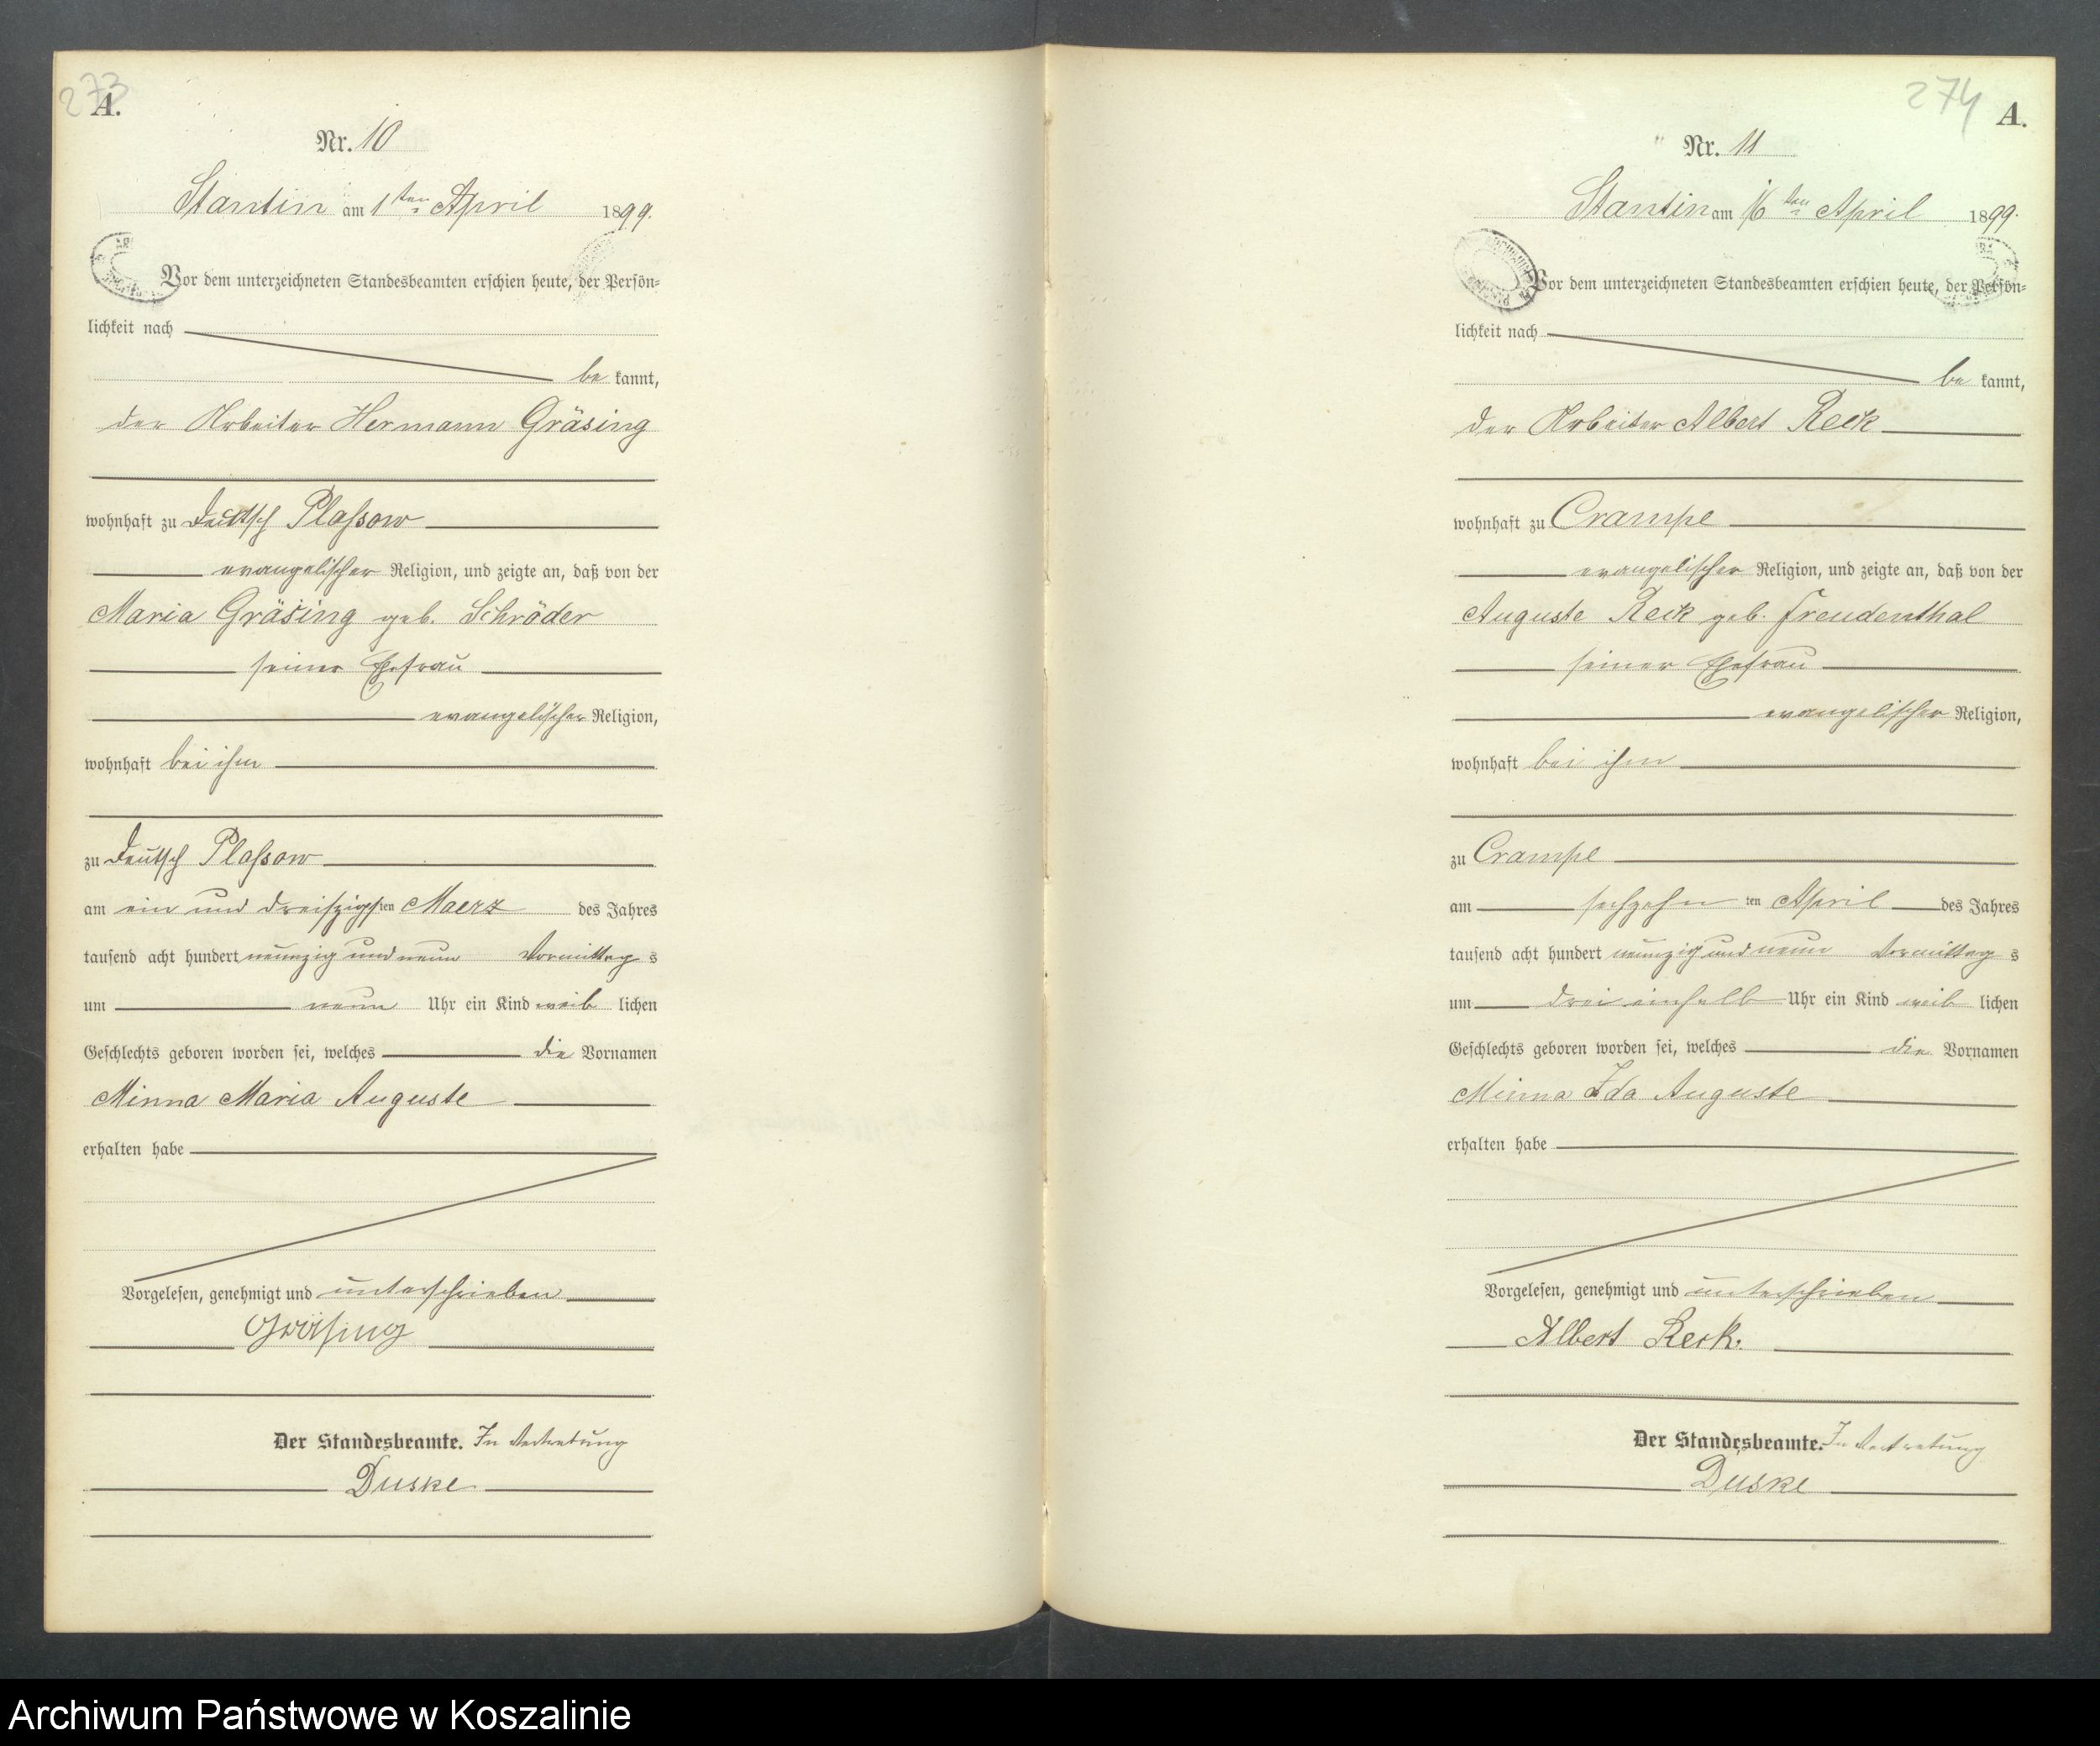 273
A.
Nr. 10
Stantin am 1ten April 1899.
Vor dem unterzeichneten Standesbeamten erschien heute, der Persön=
lichkeit nach
be kannt,
der Arbeiter Hermann Gräsing
wohnhaft zu Deutsch Plaßow
evangelischer Religion, und zeigte an, daß von der
Maria Gräsing geb. Schröder
seiner Ehefrau
evangelischer Religion,
wohnhaft bei ihm
zu Deutsch Plaßow
am ein und dreiszigsten Maerz des Jahres
tausend acht hundert neunzig und neun Vormittag s
um neun Uhr ein Kind weib lichen
Geschlechts geboren worden sei, welches die Vornamen
Minna Maria Auguste
erhalten habe
Vorgelesen, genehmigt und unterschrieben
Gräsing
Der Standesbeamte. In Vertretung
Duske
274
A.
Nr. 11
Stantin am 16ten April 1899.
Vor dem unterzeichneten Standesbeamten erschien heute, der Persön=
lichkeit nach
be kannt,
der Arbeiter Albert Reck
wohnhaft zu Crampe
evangelischer Religion, und zeigte an, daß von der
Auguste Reck geb. Freudenthal
seiner Ehefrau
evangelischer Religion,
wohnhaft bei ihm
zu Crampe
am sechzehn ten April des Jahres
tausend acht hundert neunzig und neun Vormittag s
um drei einhalb Uhr ein Kind weib lichen
Geschlechts geboren worden sei, welches die Vornamen
Minna Ida Auguste
erhalten habe
Vorgelesen, genehmigt und unterschrieben
Albert Reck.
Der Standesbeamte. In Vertretung
Duske
Archiwum Państwowe w Koszalinie